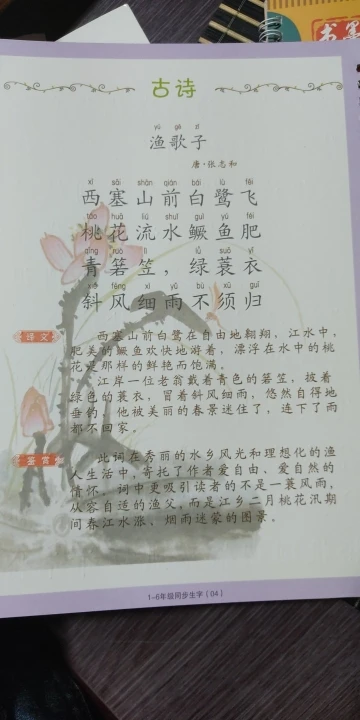 书墨
古诗
yú gē zǐ
渔歌子
唐·张志和
xī sài shān qián bái lù fēi
西塞山前白鹭飞
táo huā liú shuǐ guì yú féi
桃花流水鳜鱼肥
qīng ruò lì lǜ suō yī
青箬笠，绿蓑衣
xié fēng xì yǔ bù xū guī
斜风细雨不须归
译文
西塞山前白鹭在自由地翱翔，江水中，
肥美的鳜鱼欢快地游着，漂浮在水中的桃
花是那样的鲜艳而饱满。
江岸一位老翁戴着青色的箬笠，披着
绿色的蓑衣，冒着斜风细雨，悠然自得地
垂钓，他被美丽的春景迷住了，连下了雨
都不回家。
鉴赏
此词在秀丽的水乡风光和理想化的渔
人生活中，寄托了作者爱自由、爱自然的
情怀。词中更吸引读者的不是一蓑风雨，
从容自适的渔父，而是江乡二月桃花汛期
间春江水涨、烟雨迷蒙的图景。
1-6年级同步生字（04）